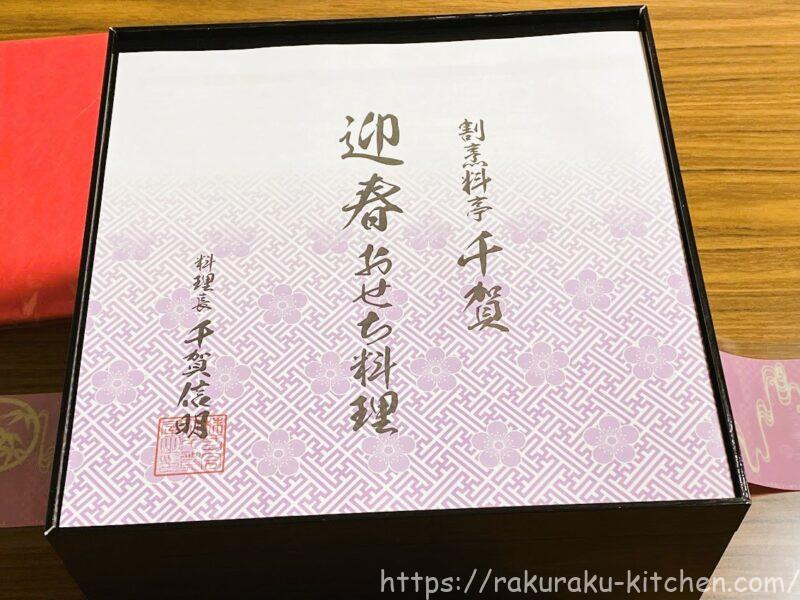 割烹料亭 千賀
迎春 おせち料理
料理長 千賀信明
https://rakuraku-kitchen.com/